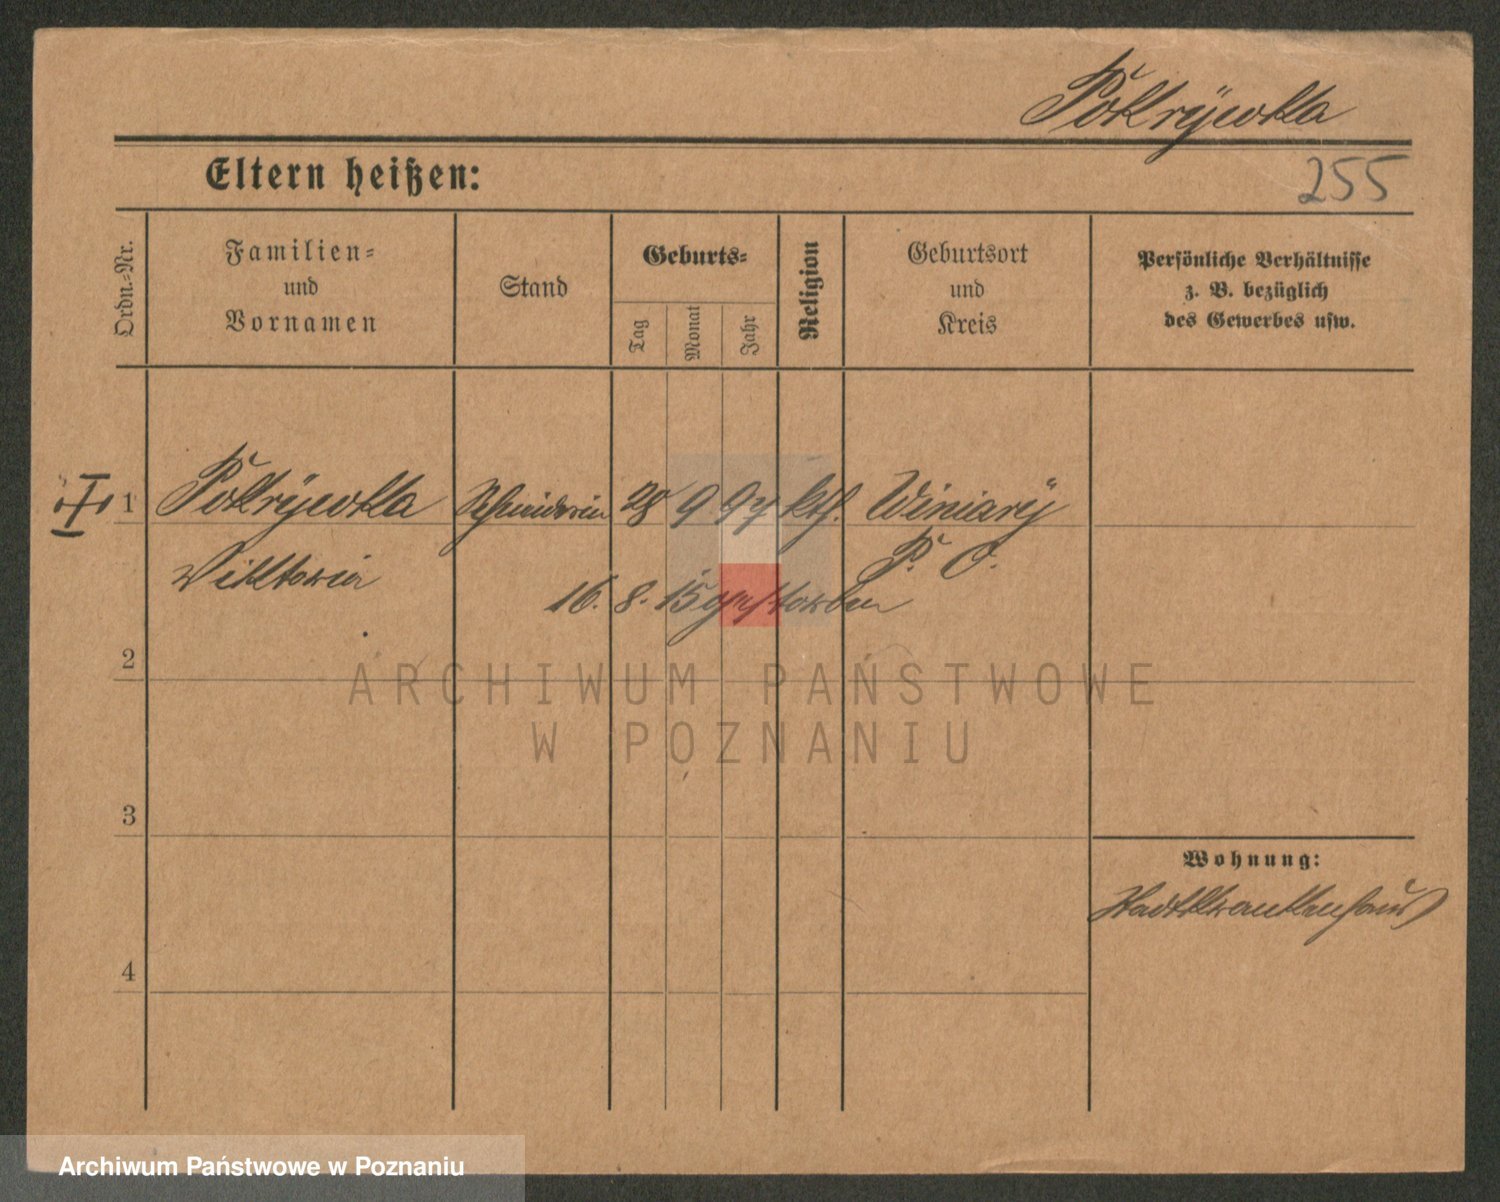 Pokrÿwka
Eltern heißen:
255
Ordn.-Nr.
Familien-
und
Vornamen
Stand
Geburts-
Tag
Monat
Jahr
Religion
Geburtsort
und
Kreis
Persönliche Verhältnisse
z. B. bezüglich
des Gewerbes usw.
1 Pokrÿwka Schneiderin 28 9 97 kth. Winiarÿ
Viktoria P. O.
16. 8. 15 gestorben
2
ARCHIWUM PAŃSTWOWE
W POZNANIU
3
Wohnung:
Stadtkrankenhaus
4
Archiwum Państwowe w Poznaniu